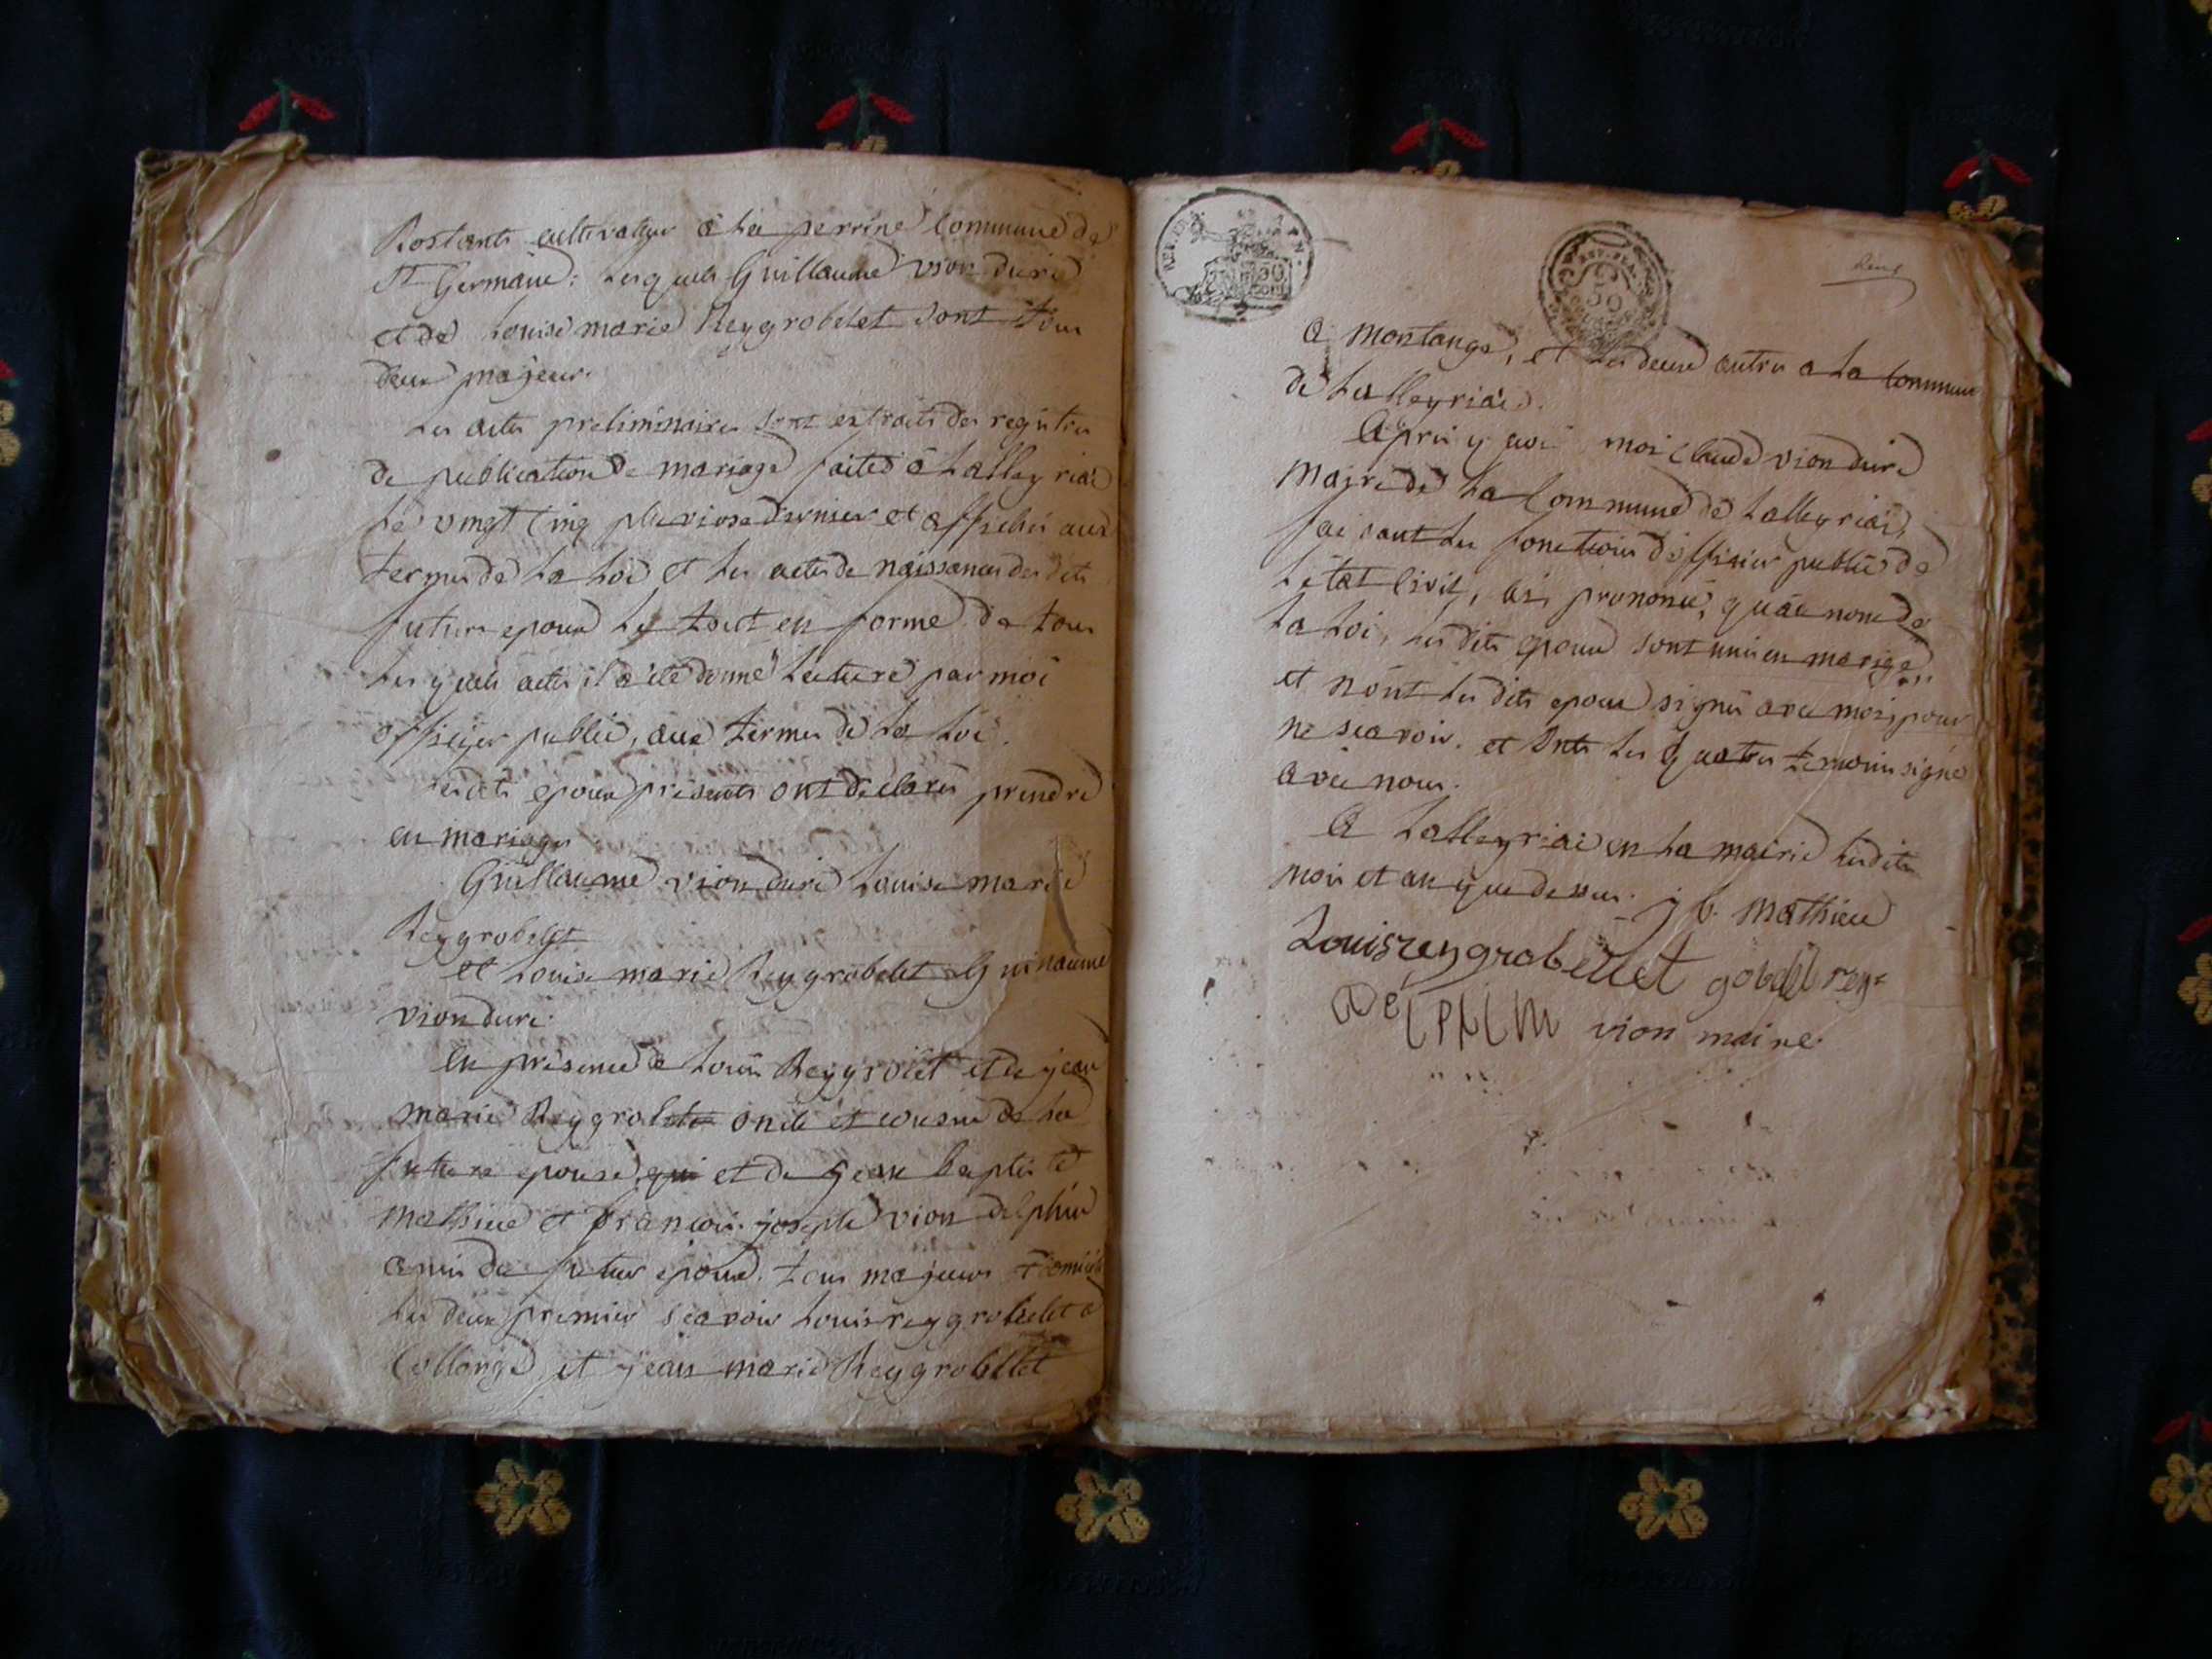 Rostants cultivateur à la perrine Commune de
St Germain: lesquels Guillaume vion duré
et de Louise marie Reygrobelet sont tous
deux majeur.
Les actes preliminaires sont extraits des registres
de publication de mariage faites à Lalleyriat
le vingt Cinq pluviose dernier et affichés aux
termes de la Loi et les actes de naissances des dits
futurs epoux le tout en forme de tous
lesquels actes il a été donné Lecture par moi
officyer public, aux termes de la Loi.
Lesdits epoux présents ont declarés prendre
en mariage
Guillaume vion duré Louise marie
Reygrobelet
et Louise marie Reygrobelet Guillaume
vion duré.
en présence de Louis Reygrobet et de jean
marie Reygrobelet oncle et cousin de la
future epouse qui et de Jean baptiste
Mathieu et françois joseph vion delphin
amis du futur epoux, tous majeurs domiciliés
les deux premier scavoir Louis reygrobelet a
Collonge et jean marie Reygrobellet
REP. FRA.
50
REP. FRA.
50
a Montange, et les deux autres a la Commune
de Lalleyriat.
Après y avoir moi Claude vion duré
Maire de la Commune de Lalleyriat,
faisant les fonctions d'officier public de
Létat Civil, ai prononcé, qu'au nom de
la Loi, les dits epoux sont unis en mariage,
et n'ont les dits epoux signés avec moi, pour
ne scavoir. et Onts les quatres temoins signé
avec nous.
A Lalleyriat en la mairie lesdits
mois et an que dessus. j b. Mathieu
Louis reygrobellet gobelet rey
Delphin vion maire.